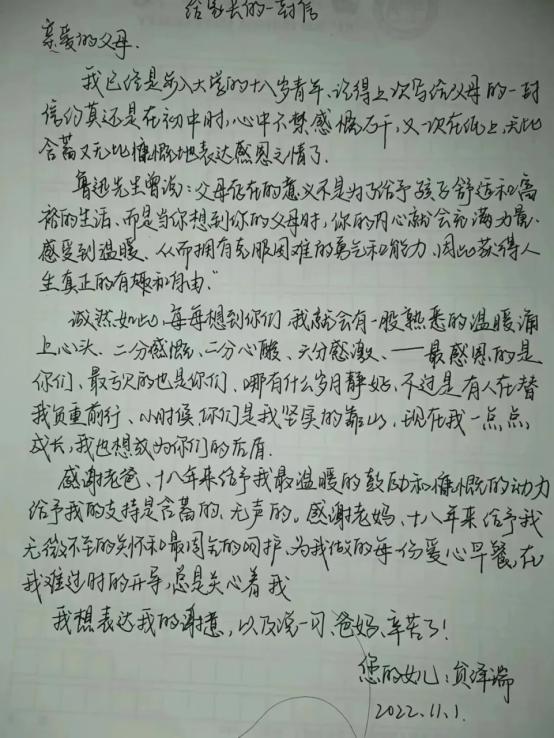 给家长的一封信
亲爱的父母.
我已经是步入大学的十八岁青年、记得上次写给父母的一封
信约莫还是在初中时,心中不禁感慨万千,又一次在纸上,无比
含蓄又无比慷慨地表达感恩之情了.
鲁迅先生曾说:父母存在的意义不是为了给予孩子舒适和富
裕的生活、而是当你想到你的父母时,你的内心就会充满力量、
感受到温暖、从而拥有克服困难的勇气和能力,因此获得人
生真正的有趣和自由."
诚然如此,每每想到你们,我就会有一股熟悉的温暖涌
上心头.二分感慨、二分心酸、六分感激、——最感恩的是
你们、最亏欠的也是你们、哪有什么岁月静好,不过是有人在替
我负重前行、小时候你们是我坚实的靠山,现在我一点点
成长,我也想成为你们的后盾.
感谢老爸、十八年来给予我最温暖的鼓励和慷慨的动力
给予我的支持是含蓄的、无声的。感谢老妈、十八年来给予我
无微不至的关怀和最周全的呵护、为我做的每份爱心早餐,在
我难过时的开导,总是关心着我
我想表达我的谢意,以及说一习、爸妈、辛苦了!
您的女儿:贠泽瑞
2022.11.1.